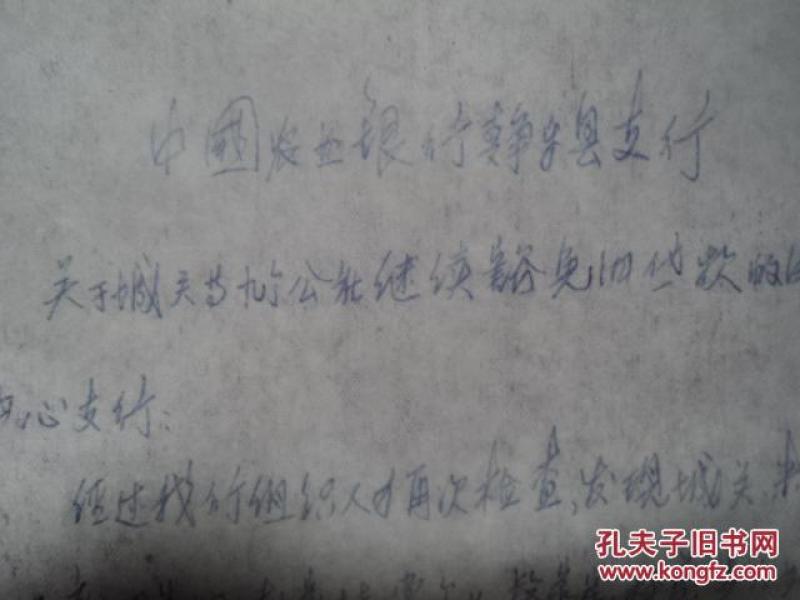 中國农业银行静乐县支行
关于城关等九个公社继续豁免旧贷款的
心支行：
经过我行组织人力再次检查，发现城关、
孔夫子旧书网
www.kongfz.com